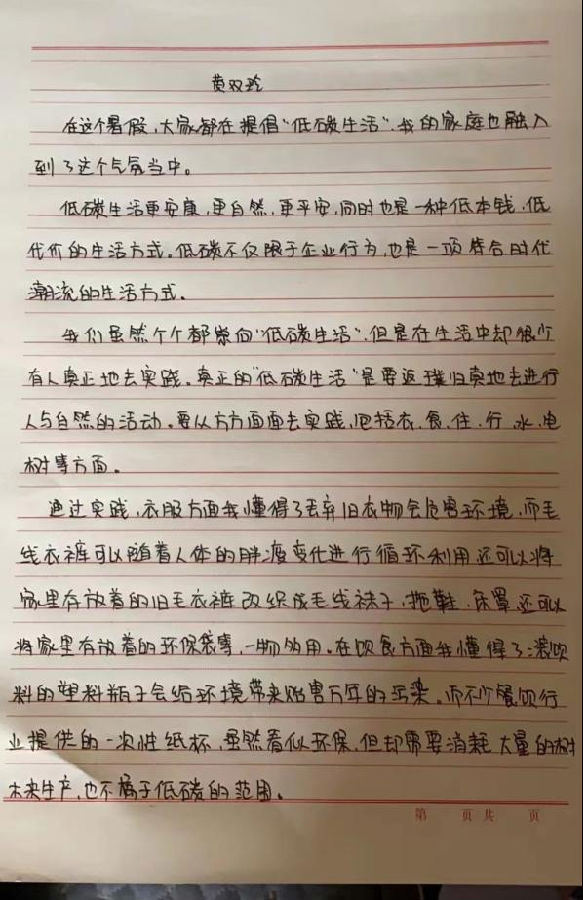 黄双玲
在这个暑假，大家都在提倡“低碳生活”，我的家庭也融入
到了这个气氛当中。
低碳生活更安康，更自然，更平安，同时也是一种低本钱、低
代价的生活方式。低碳不仅限于企业行为，也是一项符合时代
潮流的生活方式。
我们虽然个个都崇向“低碳生活”，但是在生活中却很少
有人真正地去实践。真正的“低碳生活”是要返璞归真地去进行
人与自然的活动。要从方方面面去实践，包括衣、食、住、行、水、电
树等方面。
通过实践，衣服方面我懂得了丢弃旧衣物会危害环境，而毛
线衣裤可以随着人体的胖瘦变化进行循环利用还可以将
家里存放着的旧毛衣裤改织成毛线袜子，拖鞋，床罩，还可以
将家里存放着的环保袋等，一物多用。在饮食方面我懂得了：装饮
料的塑料瓶子会给环境带来贻害万年的污染。而不少餐饮行
业提供的一次性纸杯，虽然看似环保，但却需要消耗大量的树
木来生产，也不属于低碳的范围。
第 页 共 页